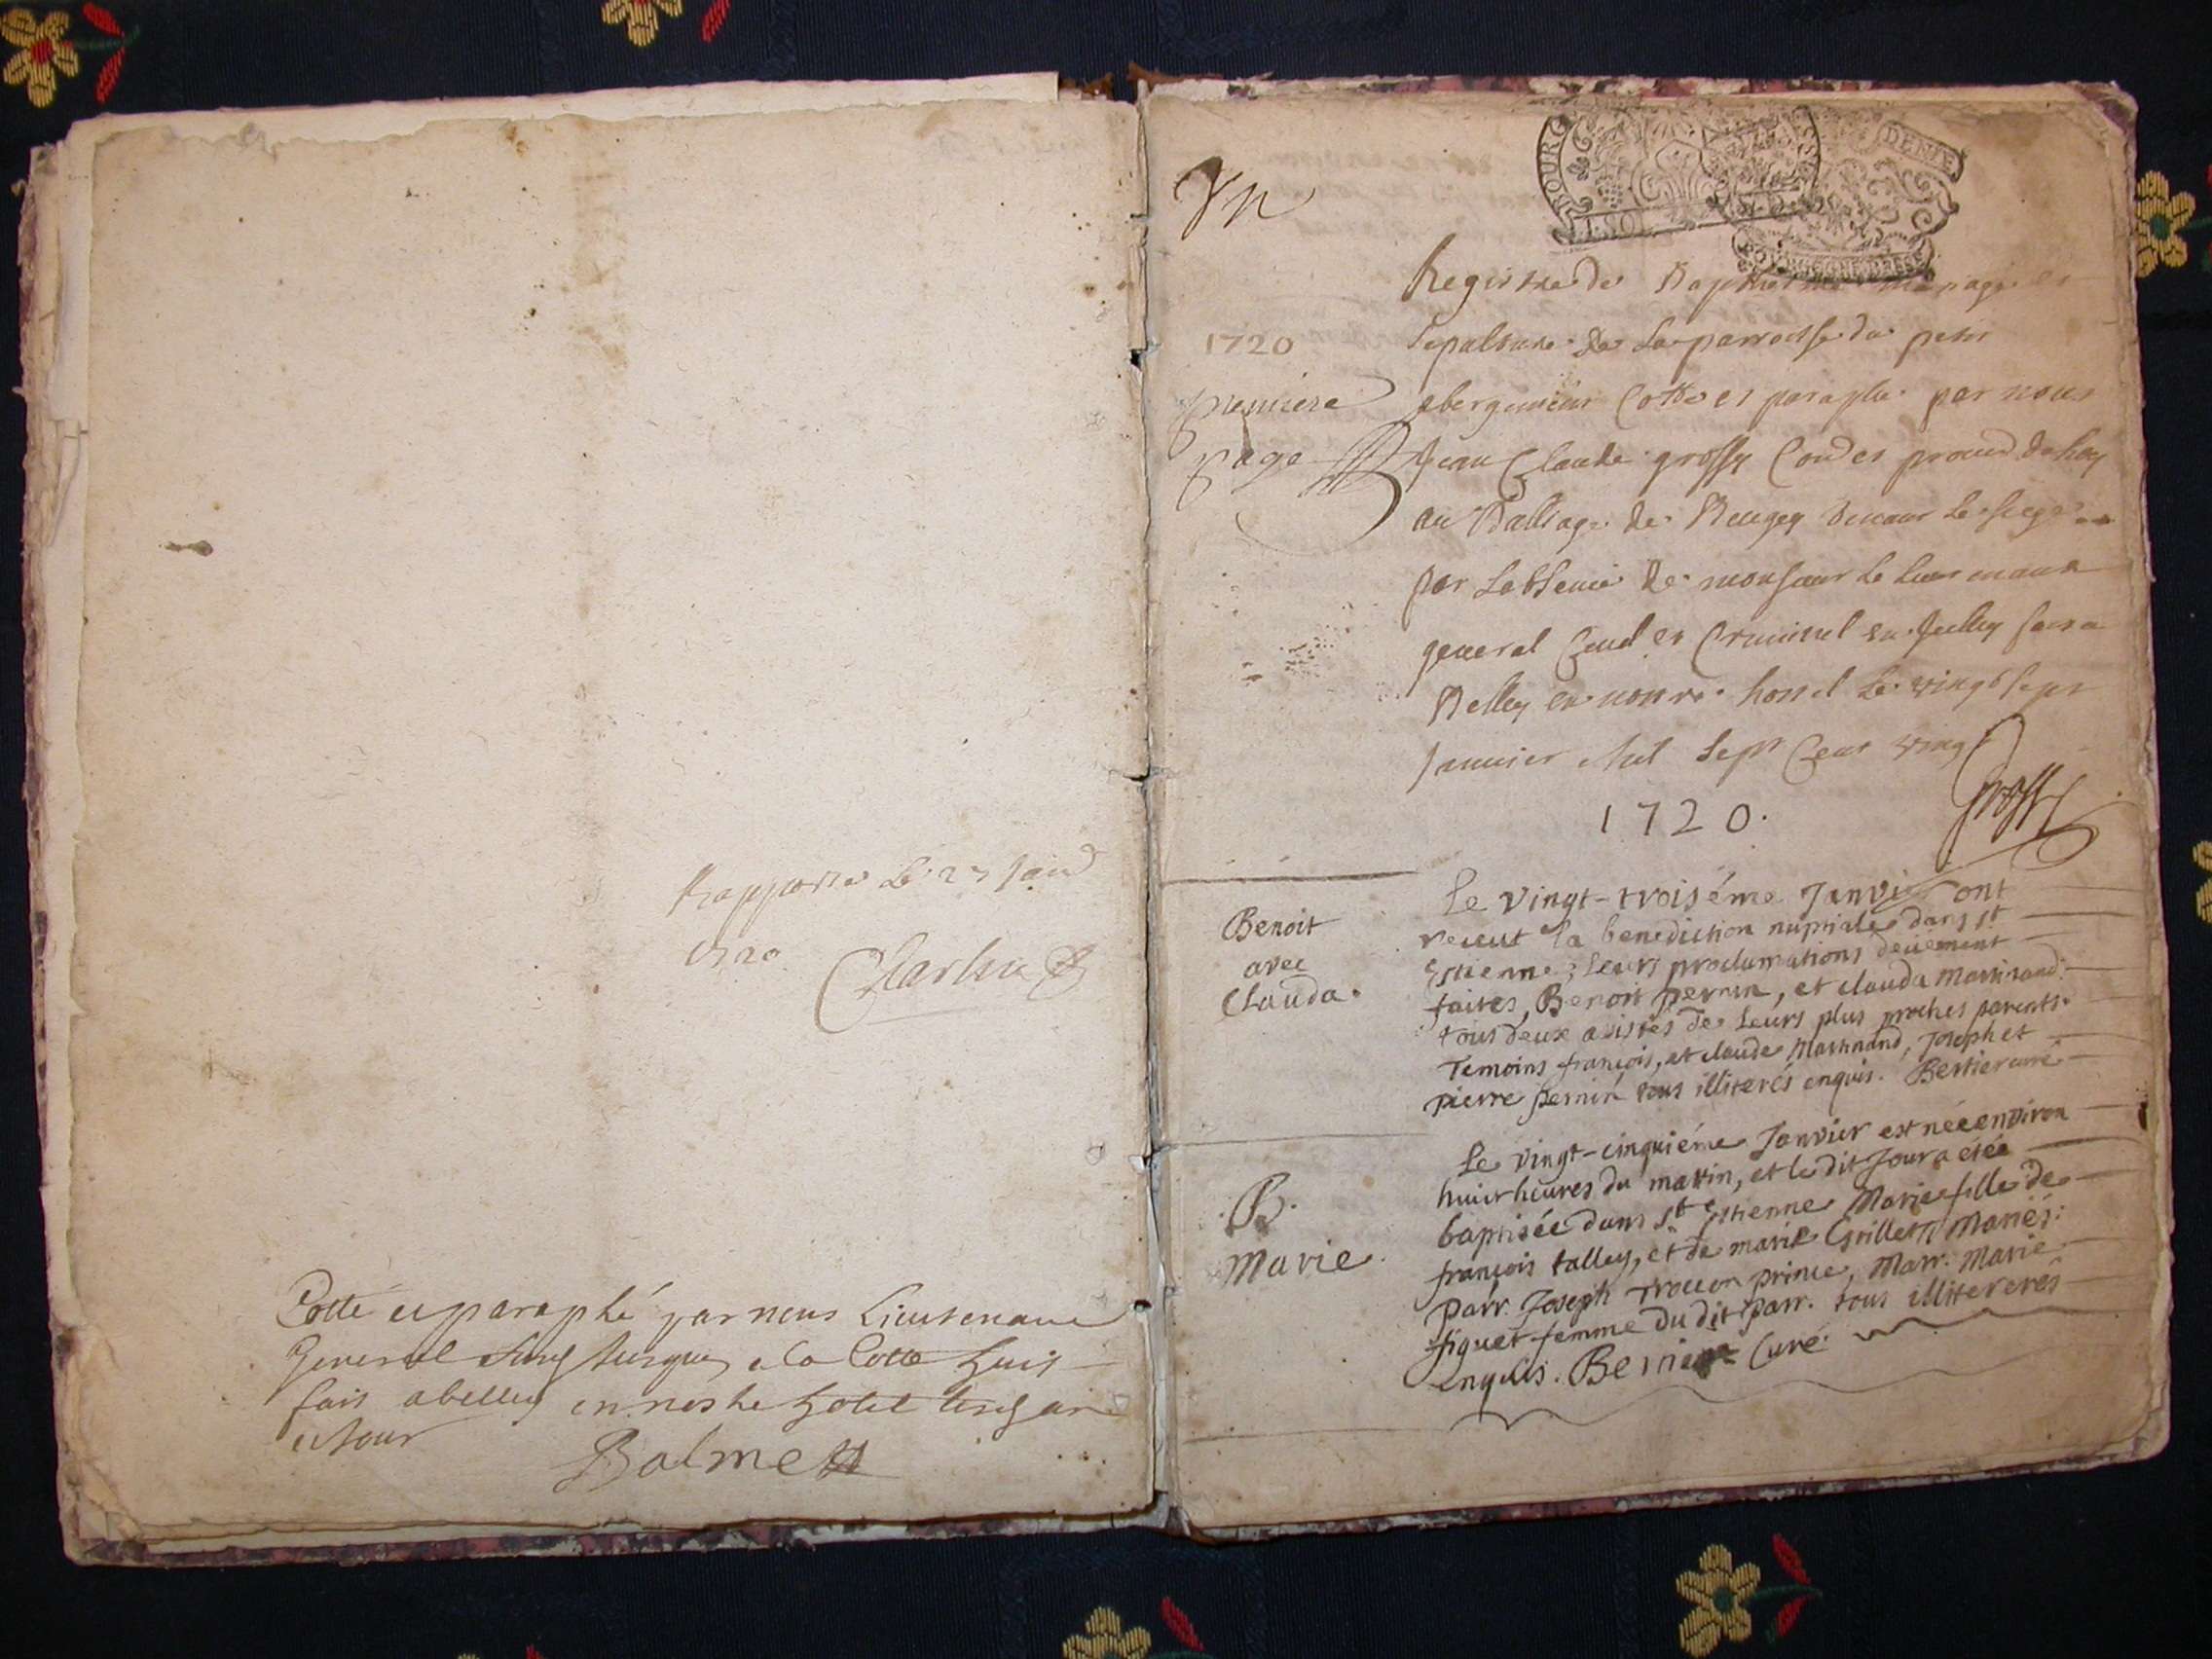 Rapporté Le 27 Janv
1720
Cotté et paraphé par nous Lieutenant
General jusques a la Cotte huit
fait a belley en nostre hotel
et jour
Balme
Un
BOURG
DENIE
1720
premiere
page
Registre de Baptheme mariage et
sepulture de La parroisse du petit
abergement Cotté et paraphé par nous
Jean Claude grossy Con.er et procu.r du Roy
au Balliage de Beugey tenant Le siege
par Labsence de monsieur le Lieutenant
general Civil et Criminel
Belley en notre hostel Le vingt sept
Janvier Mil Sept Cent vingt
1720.
Grossy
Benoit
avec
Clauda.
Le vingt-troisiéme Janvier ont
receut la benediction nuptiale dans st
Estienne; Leurs proclamations deüement
faites, Benoit pernin, et clauda Martinand
tous deux assistés de Leurs plus proches parents.
Temoins françois, et claude Martinand, Joseph et
pierre pernin tous illiterés enquis. Bernier curé
B.
Marie.
Le vingt-cinquiéme Janvier est née environ
huict heures du matin, et le dit Jour a etée
baptisée dans st Estienne Marie fille de
françois talley, et de marie Grillet Mariés:
Parr. Joseph Troccon prince, Marr. Marie
figuet femme du dit parr. tous illitererés
Enquis. Bernier Curé.